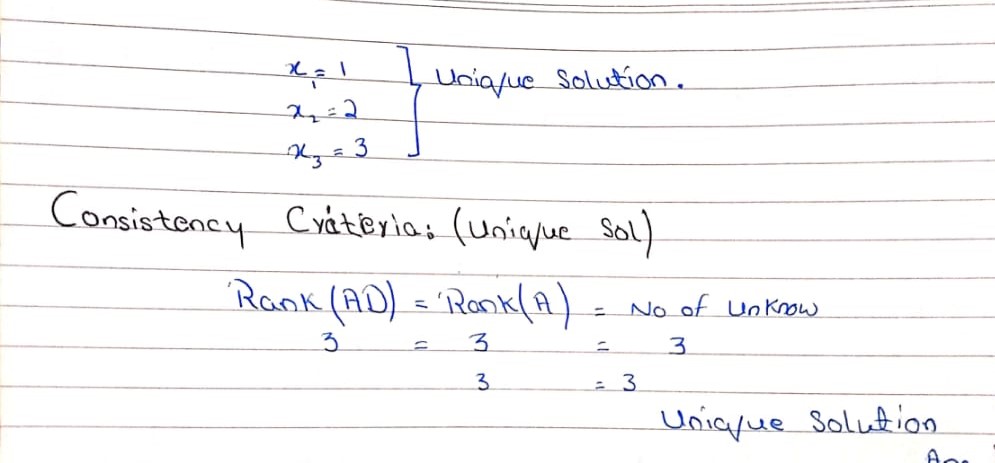 x₁ = 1
x₂ = 2
x₃ = 3
Unique Solution.
Consistency Criteria: (Unique Sol)
Rank(AD) = Rank(A) = No of Unknow
3 = 3 = 3
3 = 3
Unique Solution